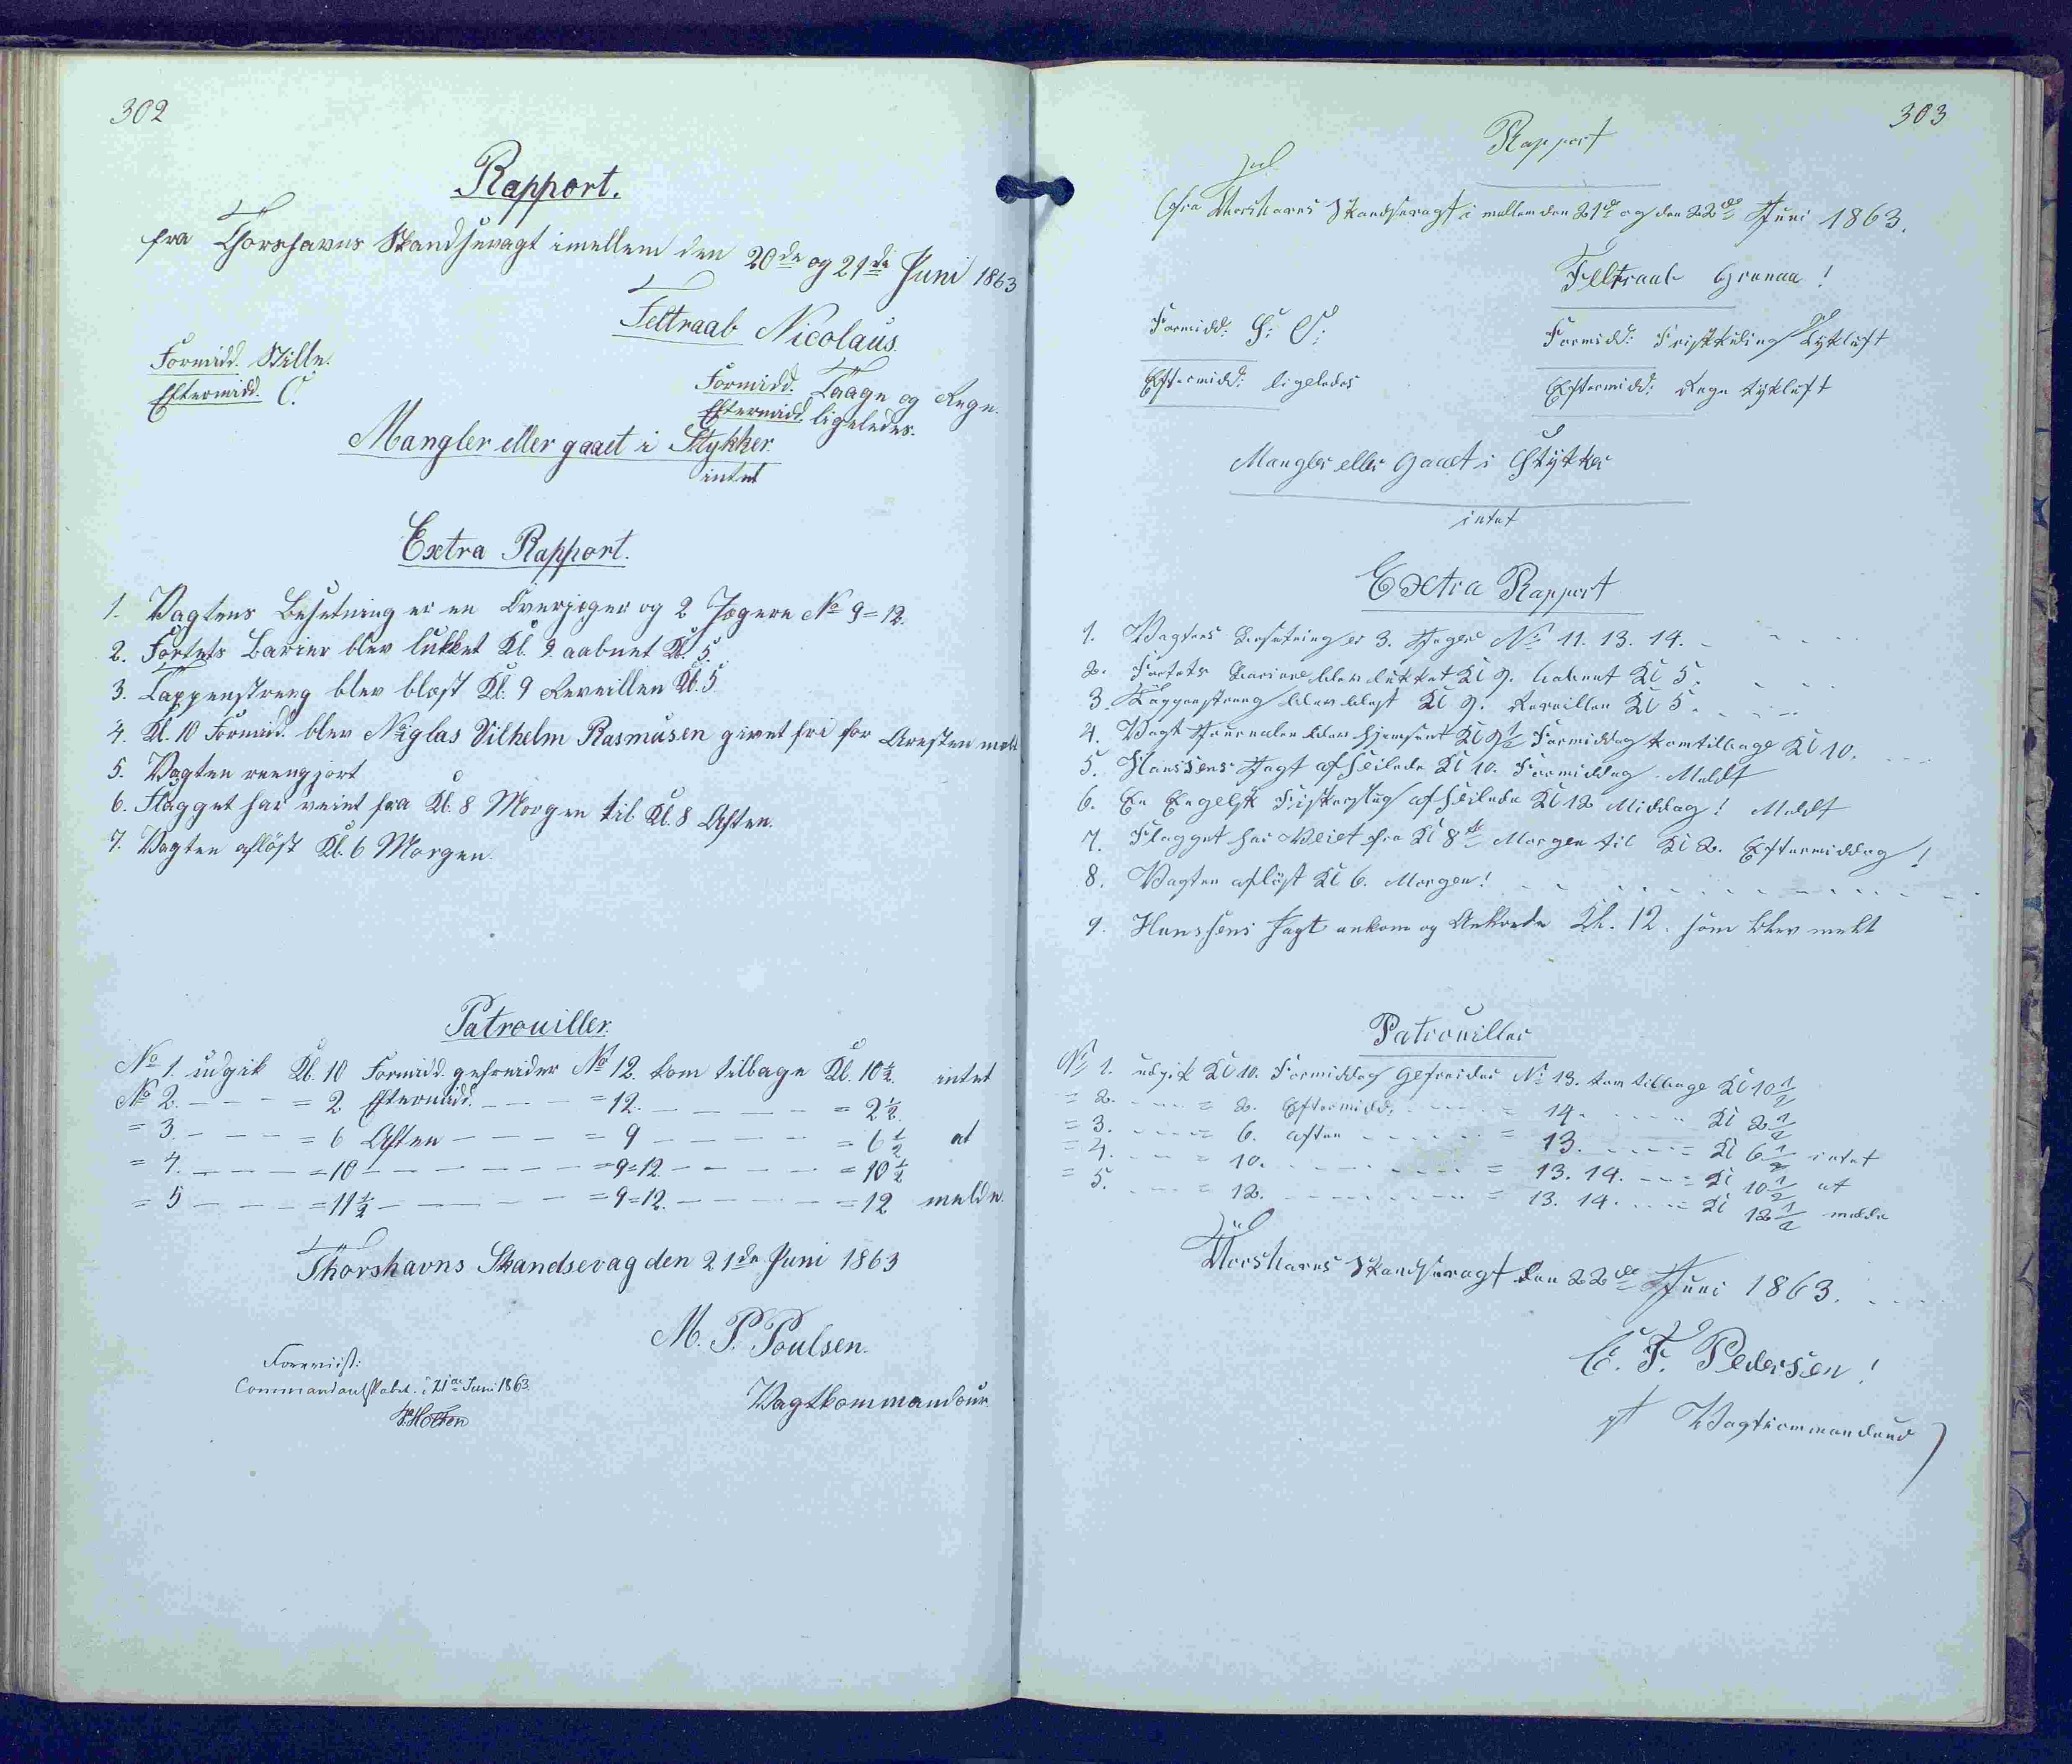 302
Rapport.
fra Thorshavns Skandsevagt imellem den 20de og 21de Juni 1863
Feltraab Nicolaus.
Formidd. Stille.
Eftermidd. O.
Formidd. Taage og Regn.
Eftermidd. ligeledes.
Mangler eller gaaet i Stykker.
intet
Extra Rapport.
1. Vagtens Besetning er en Overjæger og 2 Jægere No 9=12.
2. Fortets Barier blev lukket Kl. 9 aabnet Kl. 5.
3. Tappenstreng blev blæst Kl. 9 Reveillen Kl. 5.
4. Kl. 10 Formidd. blev Niglas Vilhelm Rasmusen givet fri for Aresten meldt
5. Vagten reengjort
6. Flagget har veiet fra Kl. 8 Morgen til Kl. 8 Aften.
7. Vagten aflöst Kl. 6 Morgen.
Patrouiller.
No 1. udgik Kl. 10 Formidd. gefreider No 12. kom tilbage Kl. 10½. intet
No 2. - - - = 2 Eftermidd. - - - = 12. - - - - = 2½.
= 3. - - - = 6 Aften - - - = 9 - - - - = 6½ at
= 4. - - - = 10 - - - - = 9=12. - - - = 10½
= 5 - - - = 11½ - - - = 9=12. - - - = 12 melde.
Thorshavns Skandsevag den 21de Juni 1863
M. P. Poulsen.
Vagtkommandeur.
Foreviist:
Commandantskabet. d. 21de Juni 1863.
Holten
303
Rapport
fra Thorshavns Skandsevagt i mellem den 21de og den 22de Juni 1863.
Feltraab Grenaa!
Formidd: S: O:
Formidd: Friskkuling Tykluft
Eftermidd: ligeledes
Eftermidd: Regn tykluft
Mangler eller gaaet i Stykker
intet
Extra Rapport
1. Vagtens Besetning er 3. Jæger No 11. 13. 14. -
2. Fortets Bariere blev lukket Kl 9. aabnet Kl 5.
3. Tappenstreng blev blæst Kl 9. Reveillen Kl 5.
4. Vagt Journalen blev hjemsent Kl 9½ Formiddag kom tilbage Kl 10.
5. Hanssens Jagt afseilede Kl 10. Formiddag. Meldt
6. En Engelsk Fiskerslup afseilede Kl 12 Middag! Meldt
7. Flagget har Veiet fra Kl 8de Morgen til Kl 2. Eftermiddag!
8. Vagten aflöst Kl 6. Morgen!
9. Hanssens Jagt ankom og Ankrede Kl. 12. som blev meldt
Patrouiller
No 1. udgik Kl 10. Formiddag Gefreider No 13. kom tilbage Kl 10½
= 2. - - - = 2. Eftermidd: - - - = 14. - - - Kl 2½
= 3. - - - = 6. Aften - - - = 13. - - - = Kl 6½ intet
= 4. - - - = 10. - - - = 13. 14. - - = Kl 10½ at
= 5. - - - = 12. - - - = 13. 14. - - = Kl 12½ melde
Thorshavns Skandsevagt den 22de Juni 1863.
C. F. Pedersen!
Vagtcommandeur